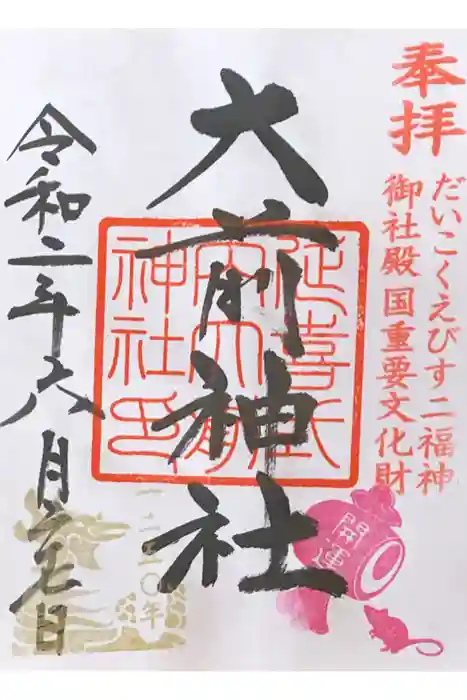 奉拝
だいこくえびす二福神
御社殿国重要文化財
大前神社
延喜式
内大前
神社印
開運
一二五〇年
令和二年六月二七日